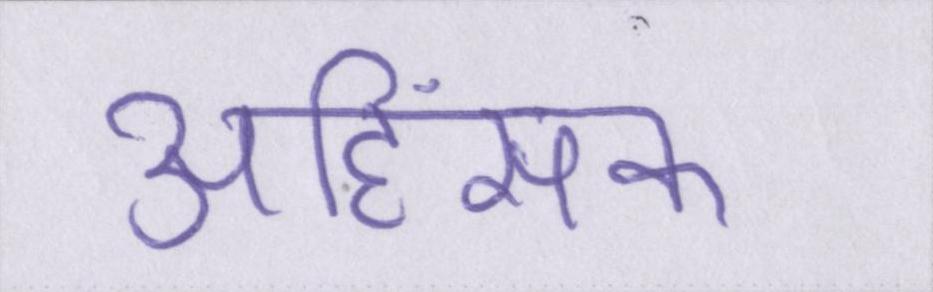 अहिंसक